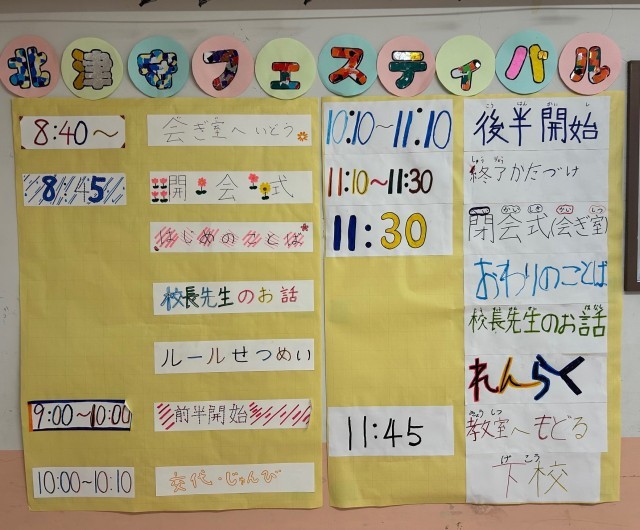 北津守フェスティバル
8:40～ 会ぎ室へいどう
8:45 開会式
はじめのことば
校長先生のお話
ルールせつめい
9:00～10:00 前半開始
10:00～10:10 交代・じゅんび
10:10～11:10 後半開始
11:10～11:30 終了かたづけ
11:30 閉会式(会ぎ室)
おわりのことば
校長先生のお話
れんらく
11:45 教室へもどる
下校